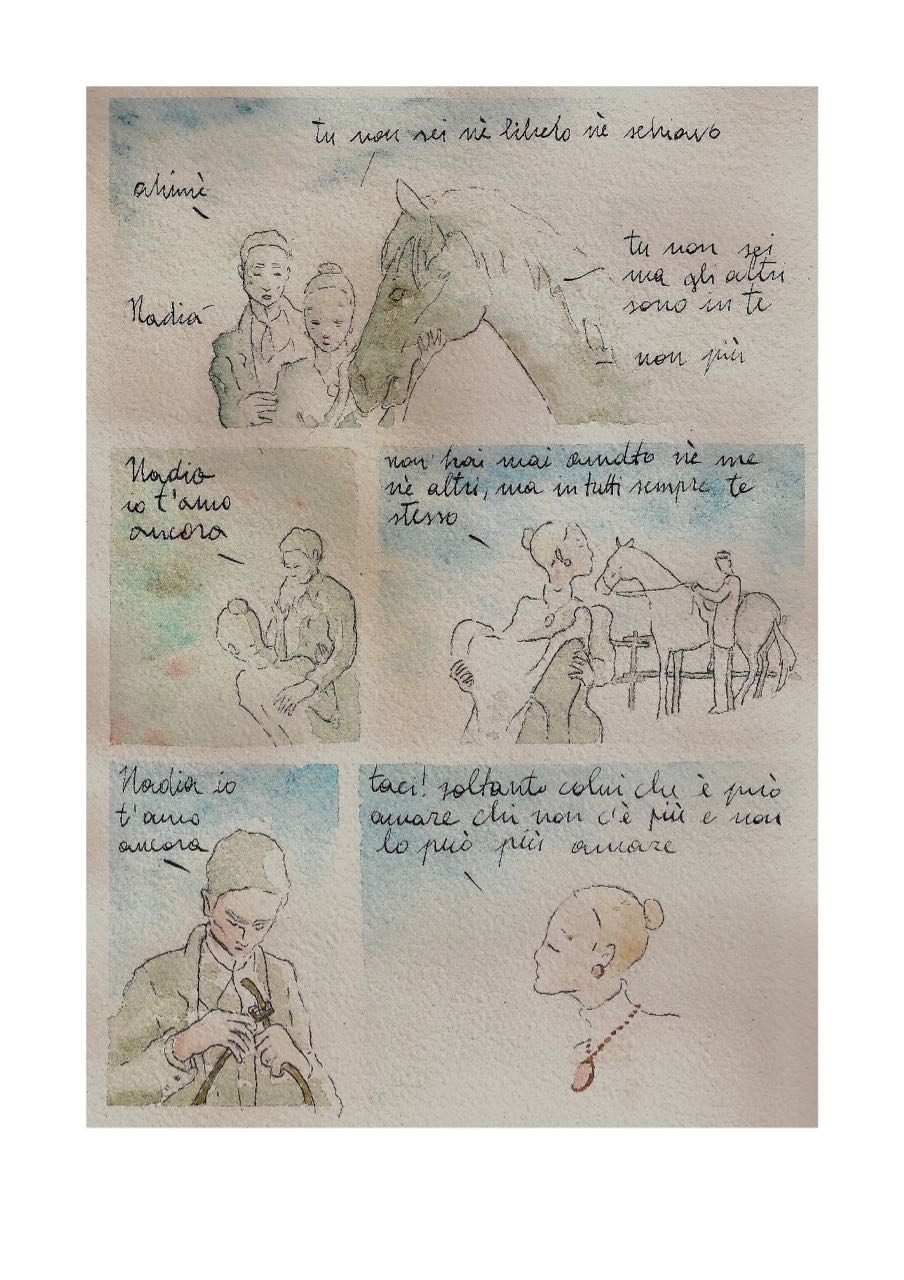 tu non sei nè libero nè schiavo
ahimè
tu non sei
ma gli altri
sono in te
Nadia
non più
Nadia
io t'amo
ancora
non hai mai amato nè me
nè altri, ma in tutti sempre te
stesso
Nadia io
t'amo
ancora
taci! soltanto colui che è può
amare chi non c'è più e non
lo può più amare